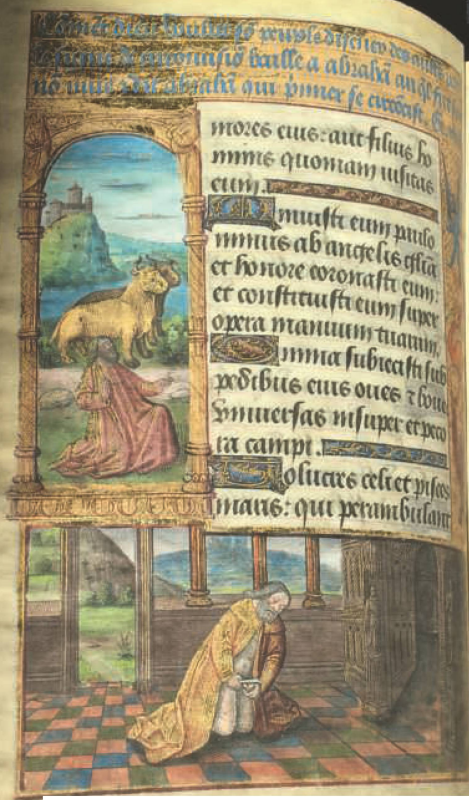 Comēt dieu
le signe de circoncisiō baille a abrahā
dit abrahā qui
mores eius: aut filius ho
minis quoniam uisitas
eum.
Minuisti eum paulo
minus ab angelis gl̄ia
et honore coronasti eum:
et constituisti eum super
opera manuum tuarum.
Omnia subiecisti sub
pedibus eius oues ⁊ boues
Vniuersas insuper et peco
ra campi.
Volucres celi et pisces
maris: qui perambulant